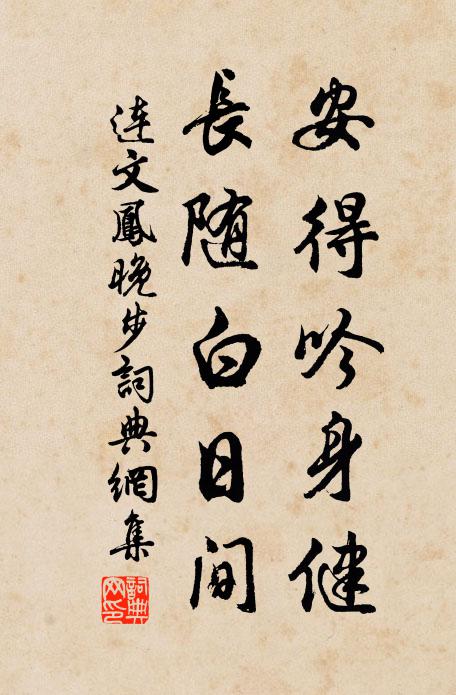 安得吟身健
長随白日間
連文鳳晚步詞典網集
詞典网印